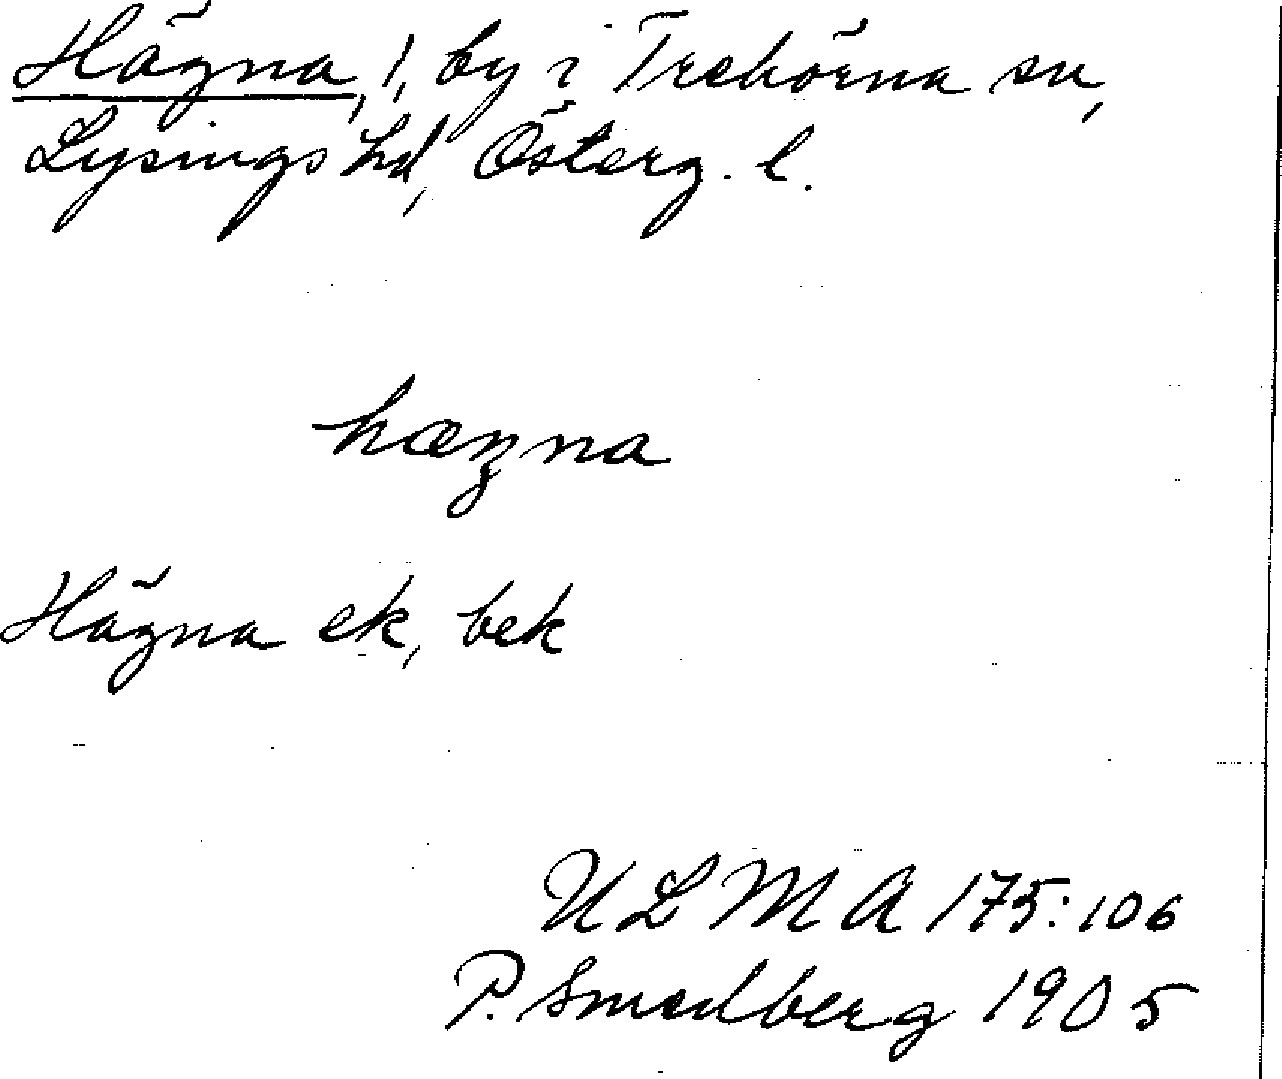 Hägna, 1, by i Trehörna sn,
Lysings hd, Österg. l.
hæŋna
Hägna ek, bek
ULMA 175:106
P. Smedberg 1905